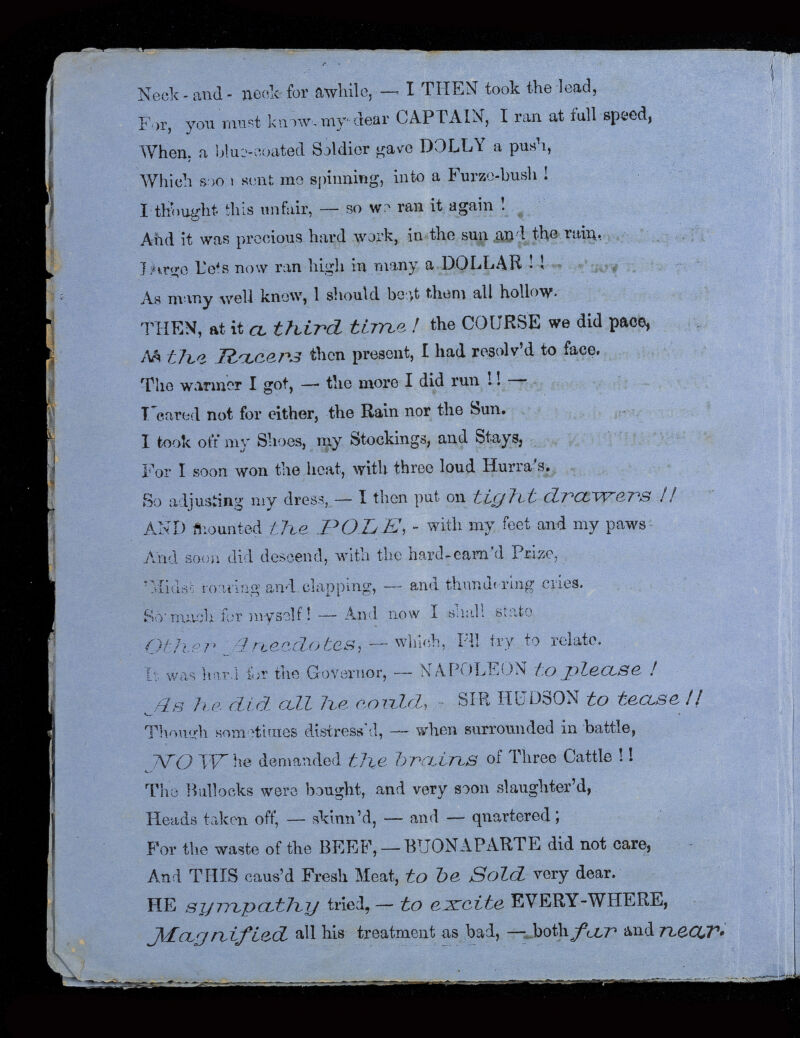 Neck - and - neck for awhile, — I THEN took the lead,
For, you must know, my dear CAPTAIN, I ran at full speed,
When, a blue-coated Soldier gave DOLLY a push,
Which soon sent me spinning, into a Furze-bush !
I thought this unfair, — so we ran it again !
And it was precious hard work, in the sun and the rain.
Large Bets now ran high in many a DOLLAR ! !
As many well knew, I should beat them all hollow.
THEN, at it a third time ! the COURSE we did pace,
As the Racers then present, I had resolv'd to face.
The warmer I got, — the more I did run ! ! —
I cared not for either, the Rain nor the Sun.
I took off my Shoes, my Stockings, and Stays,
For I soon won the heat, with three loud Hurra's.
So adjusting my dress, — I then put on tight drawers ! !
AND mounted the POLE, - with my feet and my paws
And soon did descend, with the hard-earn'd Prize,
'Midst roaring and clapping, — and thundering cries.
So much for myself ! — And now I shall state
Other Anecdotes, — which, I'll try to relate.
It was hard for the Governor, — NAPOLEON to please !
As he did all he could, - SIR HUDSON to tease ! !
Though sometimes distress'd, — when surrounded in battle,
NOW he demanded the brains of Three Cattle ! !
The Bullocks were bought, and very soon slaughter'd,
Heads taken off, — skinn'd, — and — quartered ;
For the waste of the BEEF, — BUONAPARTE did not care,
And THIS caus'd Fresh Meat, to be Sold very dear.
HE sympathy tried, — to excite EVERY-WHERE,
Magnified all his treatment as bad, — both far and near.